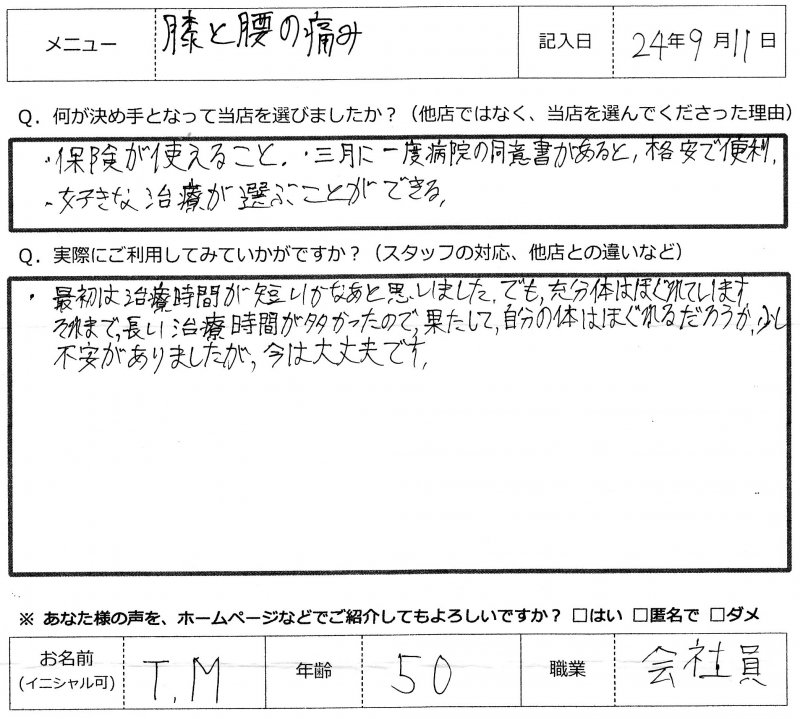 メニュー 膝と腰の痛み 記入日 24年9月11日
Q．何が決め手となって当店を選びましたか？（他店ではなく、当店を選んでくださった理由）
・保険が使えること。・三月に一度病院の同意書があると、格安で便利。
・好きな治療が選ぶことができる。
Q．実際にご利用してみていかがですか？（スタッフの対応、他店との違いなど）
・最初は治療時間が短いかなあと思いました。でも、充分体はほぐれています
それまで、長い治療時間が多かったので、果たして、自分の体はほぐれるだろうか、少し
不安がありましたが、今は大丈夫です。
※ あなた様の声を、ホームページなどでご紹介してもよろしいですか？ □はい □匿名で □ダメ
お名前 (イニシャル可) T.M 年齢 50 職業 会社員